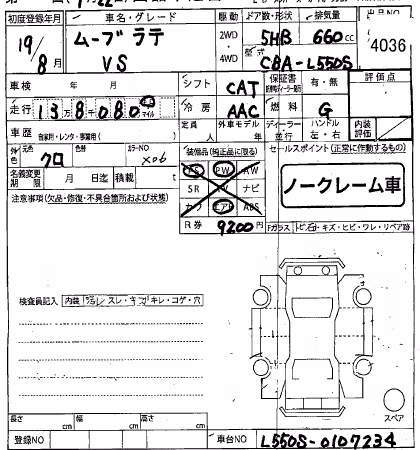 初度登録年月 車名・グレード 駆動 ドア数・形状 排気量 出品NO
19/8月 ムーブ ラテ VS 2WD・4WD 5HB 660cc 4036
型式 CBA-L550S
車検 年 月 シフト CAT 保証書 有・無 評価点
走行 13万8080 マイル 冷房 AAC 燃料 G
車歴 自家用・レンタ・事業用( ) 定員 人 外車モデル 年 ディーラー 並行 ハンドル 左・右 内装評価
外色 元色 クロ 色替 カラーNO X06 装備品(純正品に限る) セールスポイント(正常に作動するもの)
名義変更期限 月 日迄 積載 t PW AW
注意事項(欠品・修復・不具合箇所および状態) SR TV ナビ
カワ エアB ABS
ノークレーム車
R券 9200円 Fガラス トビ石・キズ・ヒビ・ワレ・リペア跡
検査員記入 内装 スレ・キズ キレ・コゲ・穴
スペア
長さ cm 幅 cm 高さ cm
登録NO 車台NO L550S-0107234